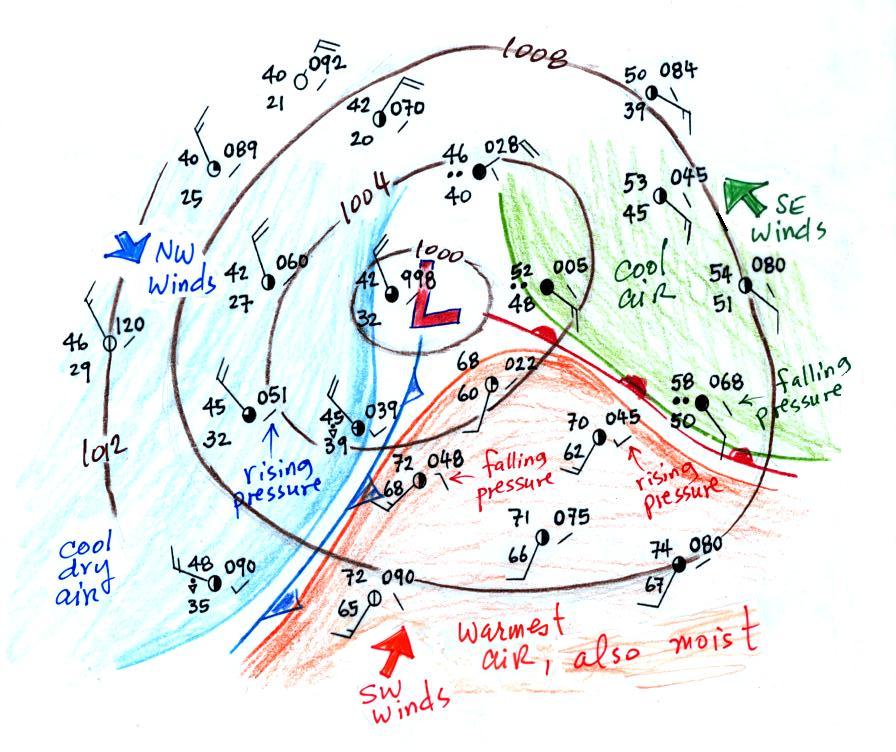 1008
40 092
21
42 070
20
50 084
39
40 089
25
46 028
40
1004
53 045
45
SE
winds
NW
winds
42 060
27
1000
42 998
32
L
52 005
48
cool
air
54 080
51
46 120
29
68 022
60
58 068
50
falling
pressure
45 051
32
45 039
39
70 045
62
1012
rising
pressure
72 048
68
falling
pressure
rising
pressure
71 075
66
74 080
67
cool
dry
air
48 090
35
72 090
65
warmest
air, also moist
SW
winds